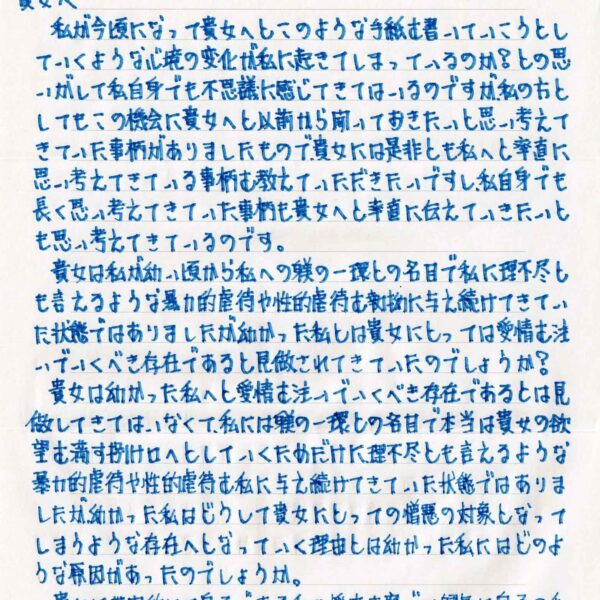 貴女へ
私が今頃になって貴女へとこのような手紙む書いていこうとし
ていくような心境の変化が私に起きてしまっているのか？との思
いがして私自身でも不思議に感じてきてはいるのですが私の方と
してもこの機会に貴女へと以前から聞っておきたいと思い考えて
きていた事柄がありましたもので貴女には是非とも私へと率直に
思い考えてきている事柄む教えていただきたいですし私自身でも
長く思い考えてきていた事柄も貴女へと率直に伝えていきたいと
も思い考えてきているのです。
貴女は私が幼い頃から私への躾の一環との名目で私に理不尽と
も言えるような暴力的虐待や性的虐待む執拗に与え続けてきてい
た状態ではありましたが幼かった私とは貴女にとっては愛情む注
いでいくべき存在であると見做されてきていたのでしょうか？
貴女は幼かった私へと愛情む注いでいくべき存在であるとは見
做してきてはいなくて、私には躾の一環との名目で本当は貴女の欲
望む満す捌け口へとしていくためだけに理不尽とも言えるような
暴力的虐待や性的虐待む私に与え続けてきていた状態ではありま
したが幼かった私はどうして貴女にとっての憎悪の対象となって
しまうような存在へとなっていく理由とは幼かった私にはどのよ
うな原因があったのでしょうか。